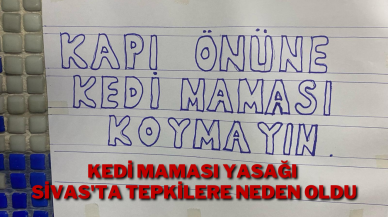 KAPI ÖNÜNE
KEDİ MAMASI
KOYMAYIN.
KEDİ MAMASI YASAĞI
SİVAS'TA TEPKİLERE NEDEN OLDU